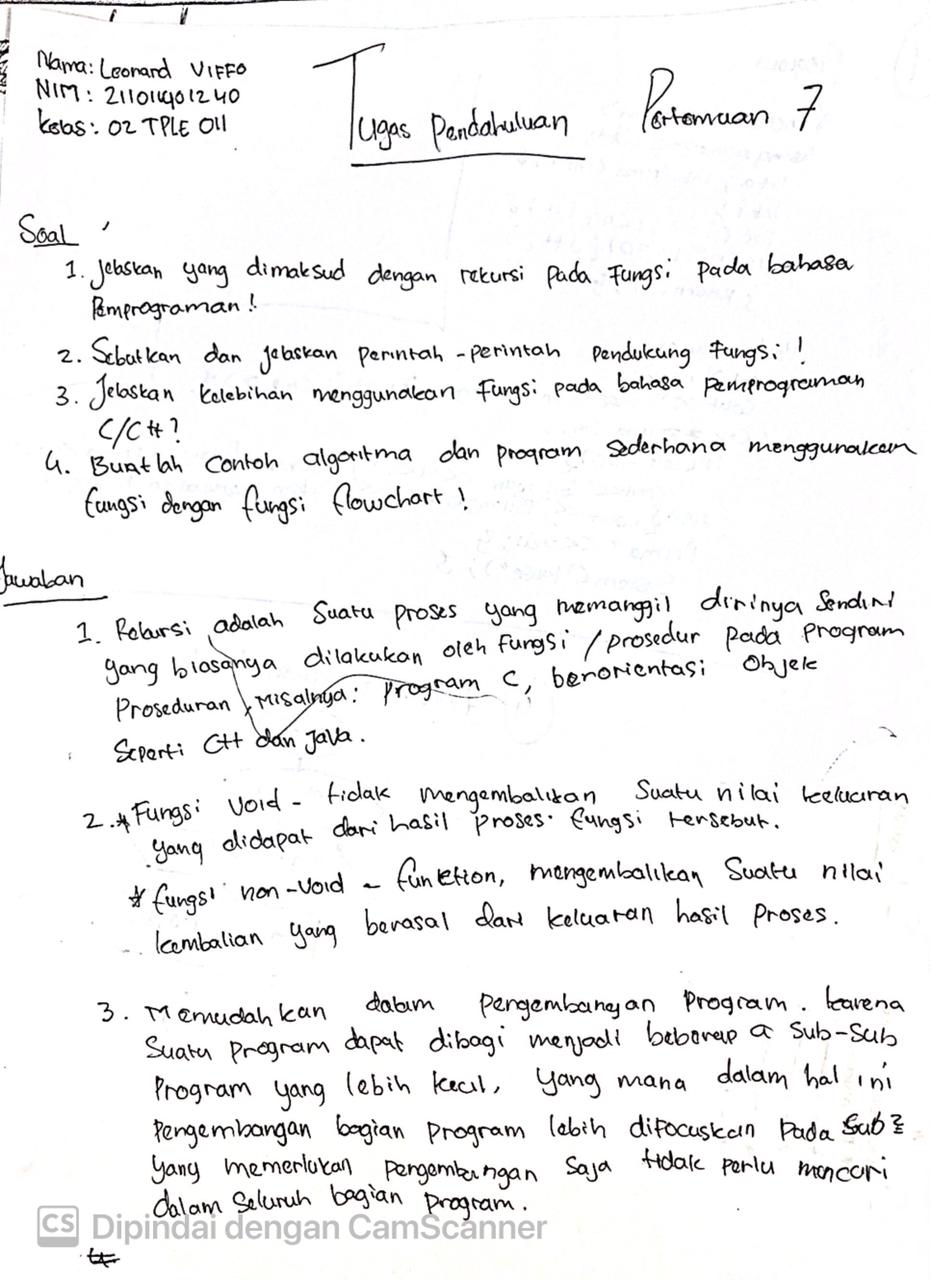 Nama: Leonard VIFFO
NIM: 211011401240
kelas: 02 TPLE 011
Tugas Pendahuluan Pertemuan 7
Soal
1. Jelaskan yang dimaksud dengan rekursi pada Fungsi pada bahasa
Pemprograman!
2. Sebutkan dan jelaskan perintah-perintah Pendukung Fungsi!
3. Jelaskan kelebihan menggunakan Fungsi pada bahasa pemprograman
C/C++?
4. Buatlah contoh algoritma dan program Sederhana menggunakan
fungsi dengan fungsi flowchart!
Jawaban
1. Rekursi adalah Suatu proses yang memanggil dirinya Sendiri
yang biasanya dilakukan oleh fungsi/prosedur pada Program
Proseduran, Misalnya: program C, berorientasi Objek
Seperti C++ dan Java.
2. * Fungsi Void - tidak mengembalikan Suatu nilai keluaran
yang didapat dari hasil proses. fungsi tersebut.
* fungsi non-Void - funktion, mengembalikan Suatu nilai
kembalian yang berasal dari keluaran hasil Proses.
3. Memudahkan dalam pengembangan Program. karena
Suatu program dapat dibagi menjadi beberapa Sub-Sub
Program yang lebih kecil, yang mana dalam hal ini
Pengembangan bagian program lebih difocuskan Pada Sub2
yang memerlukan pengembangan Saja tidak perlu mencari
dalam Seluruh bagian Program.
CS Dipindai dengan CamScanner